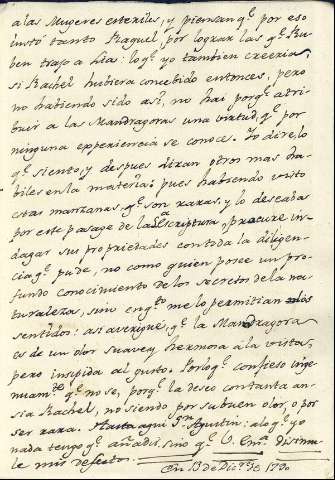 a las Mugeres esteriles, y piensan q.e por eso
instó tanto Raquel, por lograr las q.e Ru-
ben trajo a Lia: lo q.e yo tambien creeria,
si Rachel hubiera concebido entonces; pero
no habiendo sido asi, no hai porq.e atri-
buir a las Mandragoras una virtud, q.e por
ninguna experiencia se conoce. Yo dire lo
q.e siento, y despues diran otros mas ha-
biles en la materia: pues habiendo visto
estas manzanas, q.e son raras, y lo deseaba
por este pasage de la S.a Escriptura, procure in-
dagar sus propriedades con toda la diligen-
cia q.e pude, no como quien posee un pro-
fundo conocimiento de los secretos de la na-
turaleza, sino en q.to me lo permitian los
sentidos: asi averigue, q.e la Mandragora
es de un olor suave, y hermosa a la vista,
pero insipida al gusto. Por lo q.e confieso inge-
nuam.te q.e no se, porq.e la deseo con tanta an-
sia Rachel, no siendo por su buen olor, o por
ser rara. Hasta aqui S.n Agustin: a lo q.e yo
nada tengo q.e añadir, sino q.e V. Em.a disimu-
le mis defectos.
En 13 de Dic.re de 1790